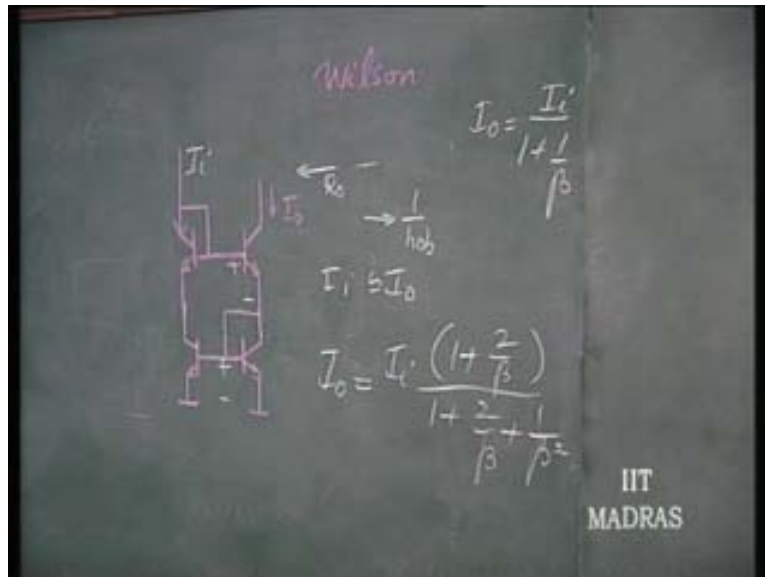 Wilson
I₀ = Iᵢ / (1 + 1/β)
Iᵢ
I₀
← R₀
→ 1/hob
+
-
Iᵢ ≅ I₀
+
-
I₀ = Iᵢ (1 + 2/β) / (1 + 2/β + 1/β²)
IIT
MADRAS